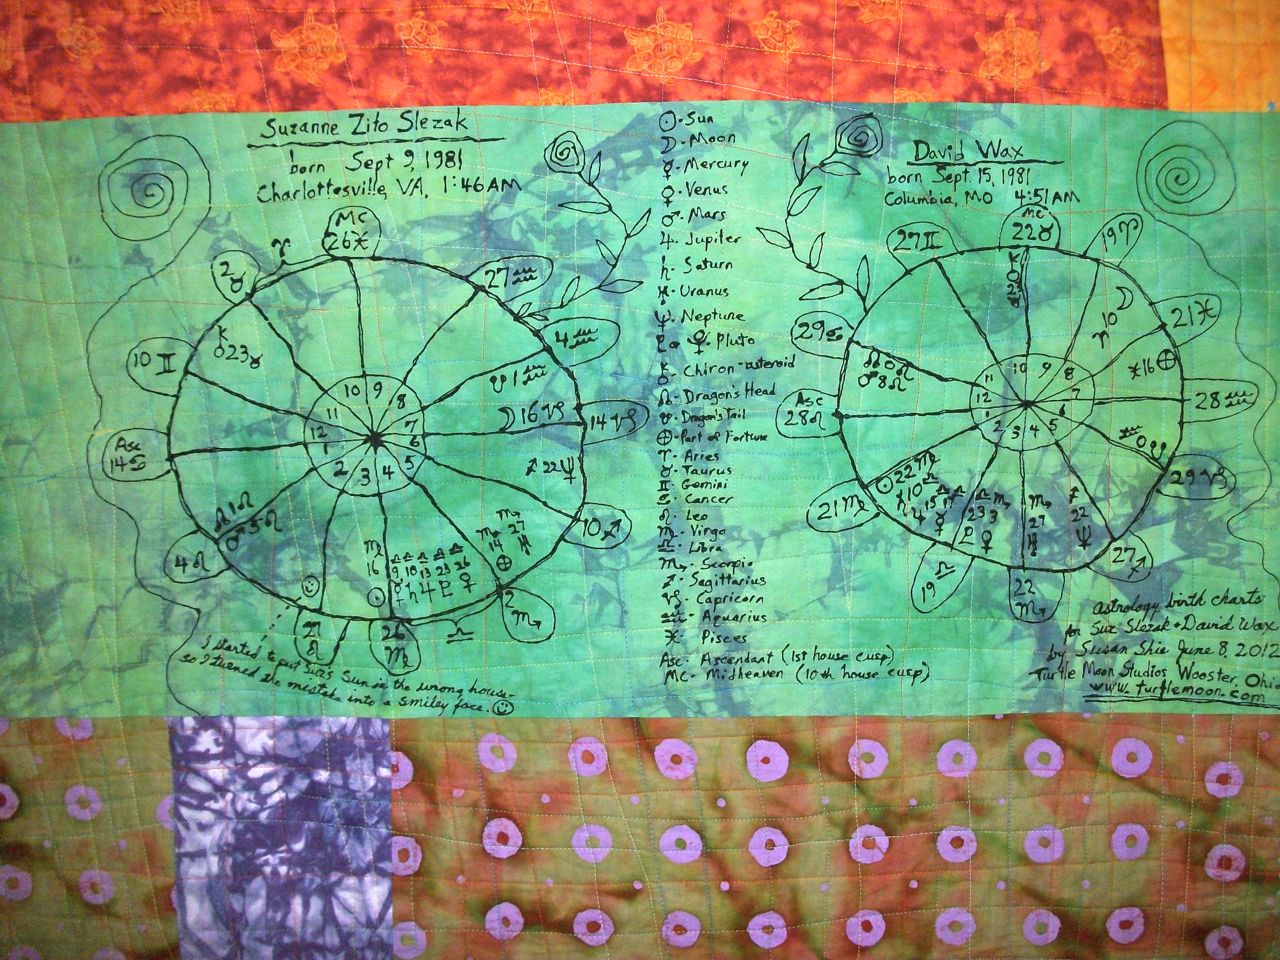 Suzanne Zito Slezak
born Sept 9, 1981
Charlottesville, VA, 1:46 AM
MC
26 ♓
♈
2
♉
27 ♒
4 ♒
10 ♊
⚷ 23 ♉
☋ 1 ♒
☽ 16 ♑
14 ♑
Asc
14 ♋
10 9
11 8
12 7
1 6
2 3 4 5
♐ 22 ♆
10 ♐
☊ 1 ♌
♂ 5 ♌
4 ♌
♍ ♎ ♎ ♎ ♎ ♎
16 9 10 13 23 26
☉ ☿ ♄ ♃ ♇ ♀
♏ ♏
14 27
⊕ ♅
27
♌
26
♍
♎
2
♏
I started to put Suz's Sun in the wrong house-
so I turned the mistake into a smiley face. ☺
☉ - Sun
☽ - Moon
☿ - Mercury
♀ - Venus
♂ - Mars
♃ - Jupiter
♄ - Saturn
♅ - Uranus
♆ - Neptune
♇ or ⯓ - Pluto
⚷ - Chiron - asteroid
☊ - Dragon's Head
☋ - Dragon's Tail
⊕ - Part of Fortune
♈ - Aries
♉ - Taurus
♊ - Gemini
♋ - Cancer
♌ - Leo
♍ - Virgo
♎ - Libra
♏ - Scorpio
♐ - Sagittarius
♑ - Capricorn
♒ - Aquarius
♓ - Pisces
Asc - Ascendant (1st house cusp)
MC - Midheaven (10th house cusp)
David Wax
born Sept. 15, 1981
Columbia, MO 4:51 AM
MC
22 ♉
27 ♊
19 ♈
29 ♋
21 ♓
☊ 0 ♌
♂ 8 ♌
♈ 10 ☽
♓ 16 ⊕
Asc
28 ♌
28 ♒
11 10 9 8
12 7
1 6
2 3 4 5
♒ 0 ☋
29 ♑
21 ♍
☉ 22 ♍
19
♎
♏
27
♅
♐
22
♆
22
♏
27
♐
Astrology birth charts
for Suz Slezak + David Wax
by Susan Shie June 8, 2012
Turtle Moon Studios Wooster, Ohio
www.turtlemoon.com